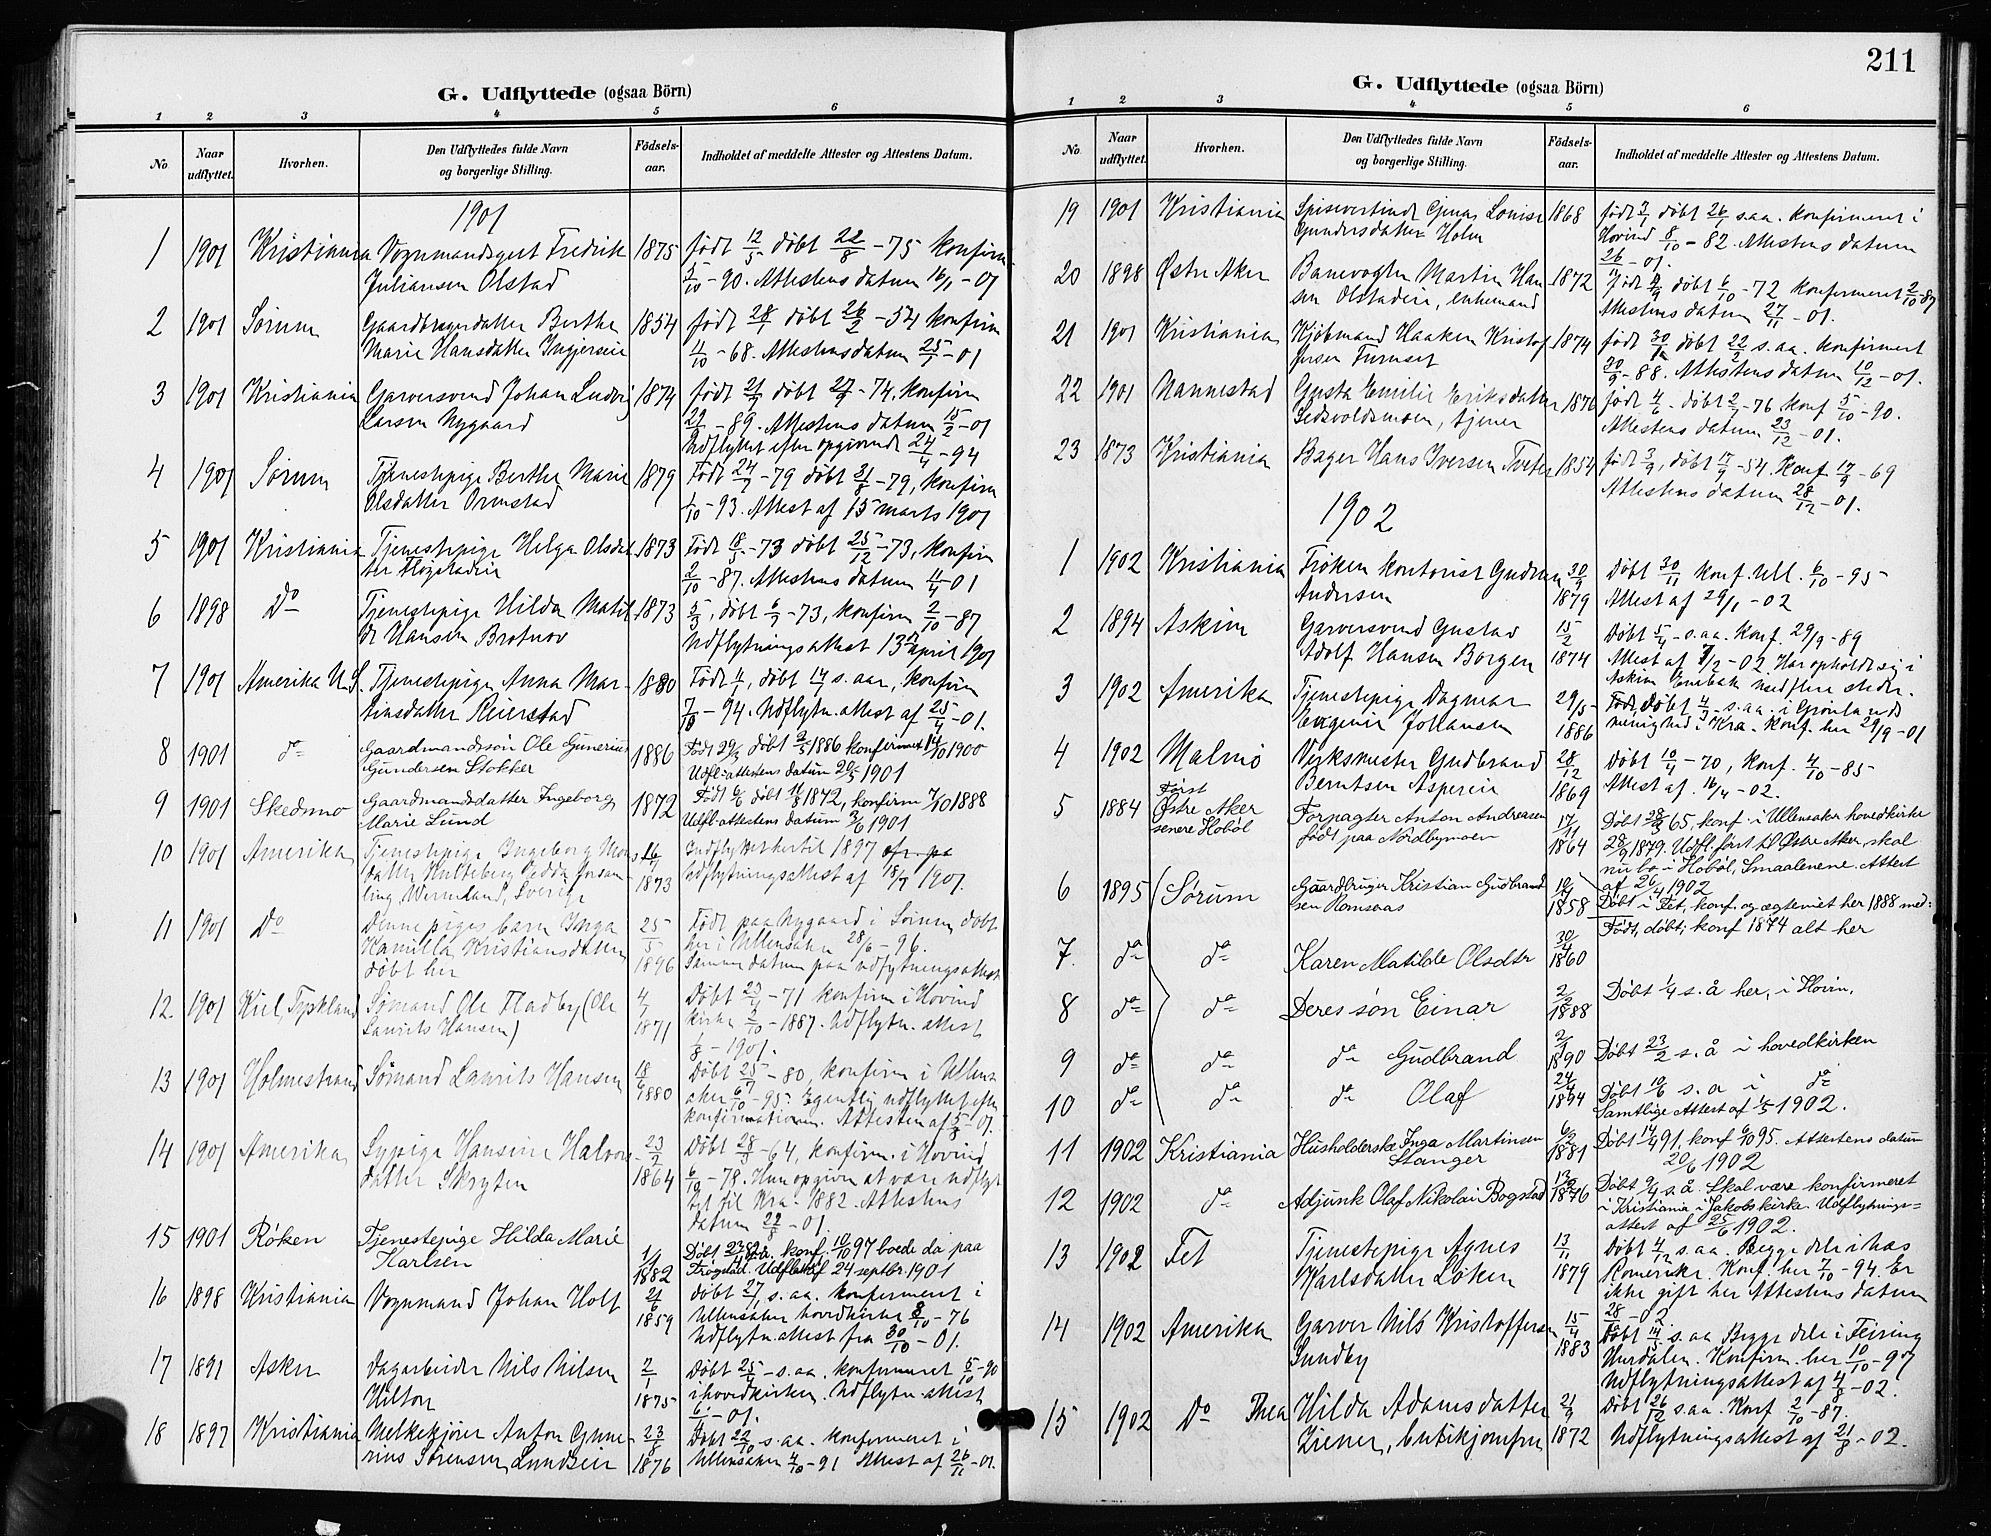 G. Udflyttede (ogsaa Börn)
1 2 3 4 5 6
No Naar udflyttet. Hvorhen. Den Udflyttedes fulde Navn og borgerlige Stilling. Födsels-aar. Indholdet af meddelte Attester og Attestens Datum.
1901
1 1901 Kristiania Vognmandsgut Fredrik 1875 født 12/5 døbt 22/8 - 75 konfirm
Juliansen Olstad 5/10 - 90. Attestens datum 16/1 - 01
2 1901 Sørum Gaardbrugerdatter Berthe 1854 født 28/1 døbt 26/2 - 54 konfirm
Marie Hansdatter 11/10 - 68. Attestens datum 25/1 - 01
3 1901 Kristiania Garversvend Johan Ludvig 1874 født døbt - 74, konfirm
Larsen Nygaard - 89. Attestens datum 15/2 - 01
Udflyttet efter opgivende 24/4 - 94
4 1901 Sørum Tjenestepige Berthe Marie 1879 Født 24/7 - 79 døbt 31/8 - 79, konfirm
Olsdatter Ormstad 1/10 - 93. Attest af 15 marts 1901
5 1901 Kristiania Tjenestepige Helga Olsdat- 1873 Født 18/5 - 73 døbt 25/12 - 73, konfirm
ter Høgstadeie 2/10 - 87. Attestens datum 11/4 - 01
6 1898 Do Tjenestepige Hilda Matil- 1873 døbt 6/7 - 73, konfirm 2/10 - 87
de Hansen Brotnov Udflytningsattest 13de April 1901
7 1901 Amerika U.S. Tjenestepige Anna Mar- 1880 Født, døbt s. aar, konfirm
tinsdatter Reierstad 7/10 - 94. Udflytn. attest af 25/4 - 01.
8 1901 do Gaardmandssøn Ole Gunerius 1886 Født 29/3 døbt 2/5 1886 konfirmert 14/10 1900
Gundersen Stokker Udfl-attestens datum 20/5 1901
9 1901 Skedsmo Gaardmandsdatter Ingeborg 1872 Født 6/6 døbt 11/8 1872, konfirm 7/10 1888
Marie Lund Udfl-attestens datum 3/6 1901
10 1901 Amerika Tjenestepige Ingeborg Mons- 16/7 Indflyttet hertil 1897
datter Hulteberg 1873 Udflytningsattest af 18/7 1901.
ling, Wermland, Sverige
11 1901 Do Denne piges barn Inga 25/5 Født paa Nygaard i Sørum, døbt
Kamilla Kristiansdatter 1896 her i Ullensaker 28/6 - 96.
døbt her Samme datum paa udflytningsattest
12. 1901 Kiel, Tyskland Sømand Ole Fladby (Ole 4/7 Døbt 23/7 - 71 konfirm i Hovind
Laurits Hansen) 1871 kirke 2/10 - 1887. Udflytn. attest
1/8 - 1901.
13 1901 Holmestrand Sømand Laurits Hansen 18/6 1880 Døbt 25/7 - 80, konfirm i Ullens
aker 6/10 - 95. Egentlig udflyttet efter
konfirmationen. Attesten af 5/8 - 01.
14 1901 Amerika Sypige Hansine Halvors- 23/2 Døbt 28/3 - 64, konfirm. i Hovind
datter Skryten 1864 6/10 - 78. Hun opgiver at være udflyt
tet til Kra. 1882. Attestens
datum 22/8 - 01
15 1901 Røken Tjenestepige Hilda Marie 1/1 Døbt konf. 10/10 97 boede da paa
Karlsen 1882 Frogstad. Udfl. attest af 24 septbr. 1901
16 1898 Kristiania Vognmand Johan Holt 21/6 døbt 27/11 s. aa. konfirmeret i
1859 Ullensaker hovedkirke 8/10 - 76
Udflytn. attest fra 30/10 - 01.
17 1891 Asker Dagarbeider Nils Nilsen 2/1 Døbt 25/4 - s. aa. konfirmeret 5/10 - 90
Hilton 1875 i hovedkirken. Udflytn. attest
6/11 - 01.
18 1897 Kristiania Melkekjører Anton Gune- 23/8 Døbt 22/10 s. aa. konfirmeret i
rius Sørensen Lundseie 1876 Ullensaker 4/10 - 91 Attest af 26/11 - 01.
211
G. Udflyttede (ogsaa Börn)
1 2 3 4 5 6
No Naar udflyttet. Hvorhen. Den Udflyttedes fulde Navn og borgerlige Stilling. Födsels-aar. Indholdet af meddelte Attester og Attestens Datum.
19 1901 Kristiania Spisevertinde Louise 1868 født 3/1 døbt 26/1 s. aa. konfirmeret i
Gundersdatter Holm Hovind 8/10 - 82. Attestens datum
26/ - 01.
20 1898 Østre Aker Banevogter Martin Han- 1872 Født 9/9 døbt 6/10 - 72 konfirmeret 2/10 - 87
sen Olstadeie, enkemand Attestens datum 27/11 - 01.
21 1901 Kristiania Kjøbmand Haaken Kristof- 1874 født 30/1 døbt 22/2 s. aa. konfirmert
fersen Furuset 30/9 - 88. Attestens datum 10/12 - 01.
22 1901 Nannestad Gusta Emilie Eriksdatter 1876 født 4/6 døbt 2/7 - 76 konf 5/10 - 90.
Ledsvoldsmoen, tjener Attestens datum 23/12 - 01.
23 1873 Kristiania Bager Hans Iversen Tveter 1854 født 3/9, døbt 17/9 - 54. Konf 17/9 - 69
Attestens datum 28/12 - 01.
1902
1 1902 Kristiania Frøken kontorist Gudrun 30/9 Døbt 30/11 konf. Ull. 6/10 - 95
Andersen 1879 Attest af 29/1 - 02
2 1894 Askim Garversvend Gustav 15/2 Døbt 5/4 - s. aa. Konf 29/9 - 89
Adolf Hansen Borgen 1874 Attest af 7/2 - 02 Har opholdt sig i
Askim Enebak med flere steder.
3 1902 Amerika Tjenestepige Dagmar 29/5 Født, Døbt 4/7 - s. aa. i Grønlands
Eugenie Johansen 1886 menighed i Kra. konf. her 29/9 - 01
4 1902 Malmö Verksmester Gudbrand 28/12 Døbt 10/4 - 70, Konf. 4/10 - 85
Berntsen Aspereie 1869 Attest af. 16/4 - 02.
5 1884 Først Østre Aker Forpagter Anton Andreasen 17/11 Døbt 28/3 65, konf. i Ullensaker hovedkirke
senere Hobøl født paa Nordbymoen 1864 28/9 1879. Udfl. først til Østre Aker, skal
nu bo i Hobøl, Smaalenene. Attest
af 26/4 1902
6 1895 Sørum Gaardbruger Kristian Gudbrand- 1858 Døbt i Fet, konf. og ægteviet her 1888 med:
sen Homsaas Født, døbt, konf 1874 alt her
7. do do Karen Matilde Olsdtr 30/4 1860
8 do do Deres søn Einar 2/2 1888 Døbt 1/4 s. å her, i Hovin,
9 do do do Gudbrand 2/1 1890 Døbt 23/2 s. å i hovedkirken
10 do do do Olaf 24/4 1894 Døbt 10/6 s. a i do
Samtlige Attest af 1/5 1902.
11 1902 Kristiania Husholderske Inga Martinsen 6/2 1881 Døbt konf 6/10 95. Attestens datum
Stanger 20/6 1902
12 1902 do Adjunk Olaf Nikolai Bogstad 1876 Døbt 9/4 s. å. Skal være konfirmeret
i Kristiania i Jakobs kirke. Udflytnings-
attest af 25/6 1902.
13 1902 Fet Tjenestepige Agnes 13/11 Døbt 4/12 s. aa. Begge dele i Næs
Karlsdatter Løken 1879 Romerike. Konf. her 7/10 - 94. Er
ikke gift her Attestens datum
28/ - 02.
14 1902 Amerika Garver Nils Kristoffersen 15/4 Døbt 14/5 s. aa Begge dele i Feiring
Sundby 1883 Hurdalen. Konfirm. her 10/10 - 97
Udflytningsattest af 4/8 - 02.
15 1902 Do Thea Hilda Adamsdatter 21/9 Døbt 26/12 s. aa. Konf 2/10 - 87.
Ziener, butikjomfru 1872 Udflytningsattest af 21/8 - 02.